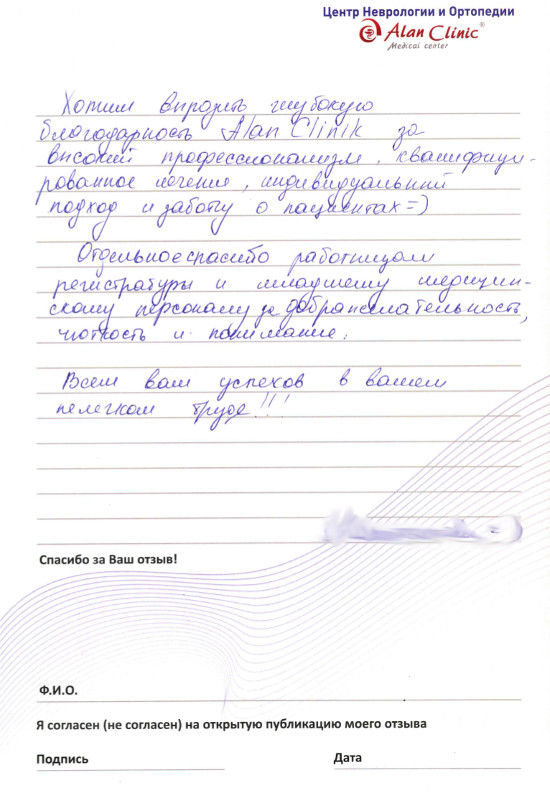 Центр Неврологии и Ортопедии
Alan Clinic®
Medical center
Хотим выразить глубокую
благодарность Alan Clinik за
высокий профессионализм, квалифици-
рованное лечение, индивидуальный
подход и заботу о пациентах =)
Отдельное спасибо работницам
регистратуры и младшему медицин-
скому персоналу за доброжелательность,
чуткость и понимание.
Всем вам успехов в вашем
нелегком труде!!!
Спасибо за Ваш отзыв!
Ф.И.О.
Я согласен (не согласен) на открытую публикацию моего отзыва
Подпись Дата